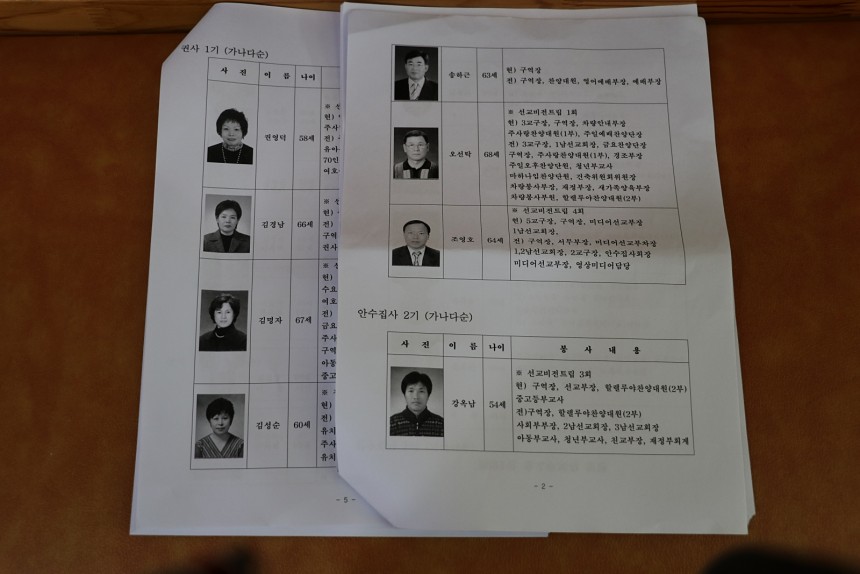 권사 1기 (가나다순)
사 진 이 름 나이
권영덕 58세
김경남 66세
김명자 67세
김성순 60세
- 5 -
송하근 63세
현) 구역장
전) 구역장, 찬양대원, 영어예배부장, 예배부장
오선탁 68세
※ 선교비전트립 1회
현) 3교구장, 구역장, 차량안내부장
주사랑찬양대원(1부), 주일예배찬양단장
전) 3교구장, 1남선교회장, 금요찬양단장
구역장, 주사랑찬양대원(1부), 경조부장
주일오후찬양단원, 청년부교사
마하나임찬양단원, 건축위원회위원장
차량봉사부장, 재정부장, 새가족양육부장
차량봉사부원, 할렐루야찬양대원(2부)
조영호 64세
※ 선교비전트립 4회
현) 5교구장, 구역장, 미디어선교부장
1남선교회장,
전) 구역장, 서무부장, 미디어선교부차장
1,2남선교회장, 2교구장, 안수집사회장
미디어선교부장, 영상미디어담당
안수집사 2기 (가나다순)
사 진 이 름 나이 봉 사 내 용
강옥남 54세
※ 선교비전트립 3회
현) 구역장, 선교부장, 할렐루야찬양대원(2부)
중고등부교사
전)구역장, 할렐루야찬양대원(2부)
사회부부장, 2남선교회장, 3남선교회장
아동부교사, 청년부교사, 친교부장, 재정부회계
- 2 -